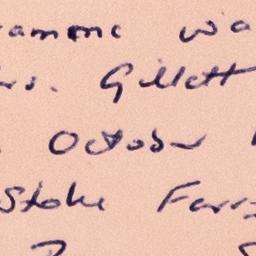 ramme wa
rs. Gillett
October
Stoke Ferr